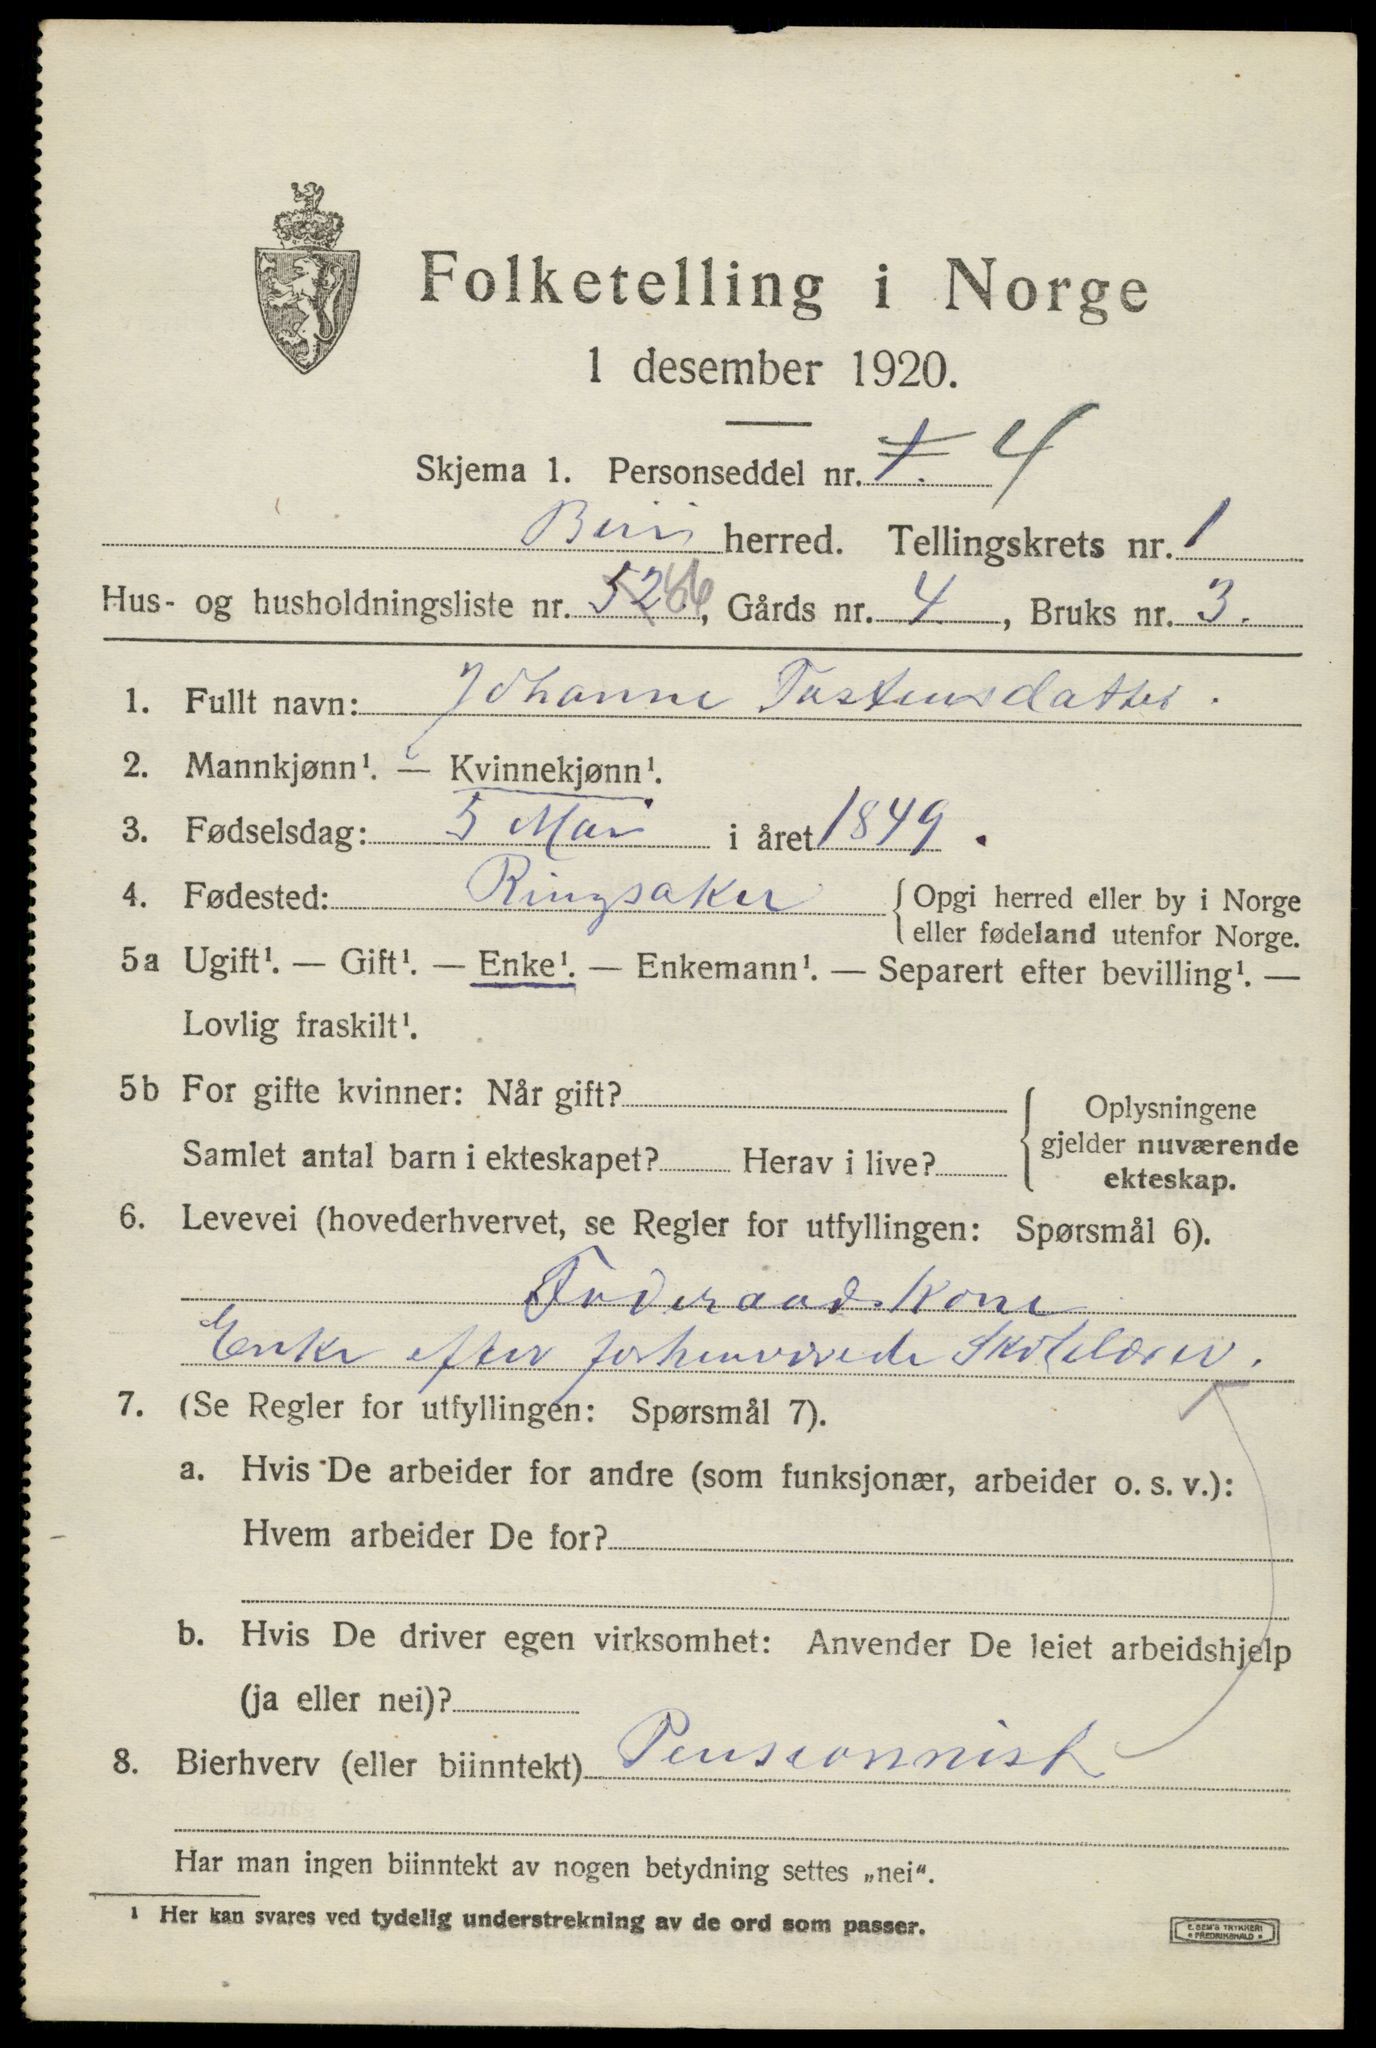 Folketelling i Norge
1 desember 1920.
Skjema 1. Personseddel nr. 1. 4
Biri herred. Tellingskrets nr. 1
Hus- og husholdningsliste nr. 52 66, Gårds nr. 4, Bruks nr. 3.
1. Fullt navn: Johanne Tostensdatter.
2. Mannkjønn¹. — Kvinnekjønn¹.
3. Fødselsdag: 5 Mai i året 1849.
4. Fødested: Ringsaker { Opgi herred eller by i Norge
eller fødeland utenfor Norge.
5a Ugift¹. — Gift¹. — Enke¹. — Enkemann¹. — Separert efter bevilling¹. —
Lovlig fraskilt¹.
5b For gifte kvinner: Når gift?
Samlet antal barn i ekteskapet? Herav i live?
Oplysningene
gjelder nuværende
ekteskap.
6. Levevei (hovederhvervet, se Regler for utfyllingen: Spørsmål 6).
Føderaadskone
Enke efter forhenværede Skolelærer.
7. (Se Regler for utfyllingen: Spørsmål 7).
a. Hvis De arbeider for andre (som funksjonær, arbeider o. s. v.):
Hvem arbeider De for?
b. Hvis De driver egen virksomhet: Anvender De leiet arbeidshjelp
(ja eller nei)?
8. Bierhverv (eller biinntekt) Penseonnist
Har man ingen biinntekt av nogen betydning settes „nei“.
¹ Her kan svares ved tydelig understrekning av de ord som passer.
E. SEM'S TRYKKERI
FREDRIKSHALD